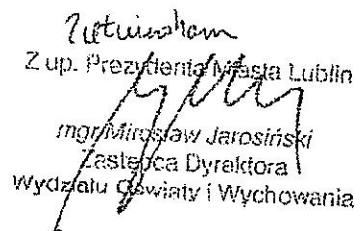 Zatwierdzam
Z up. Prezydenta Miasta Lublin
mgr Mirosław Jarosiński
Zastępca Dyrektora
Wydziału Oświaty i Wychowania